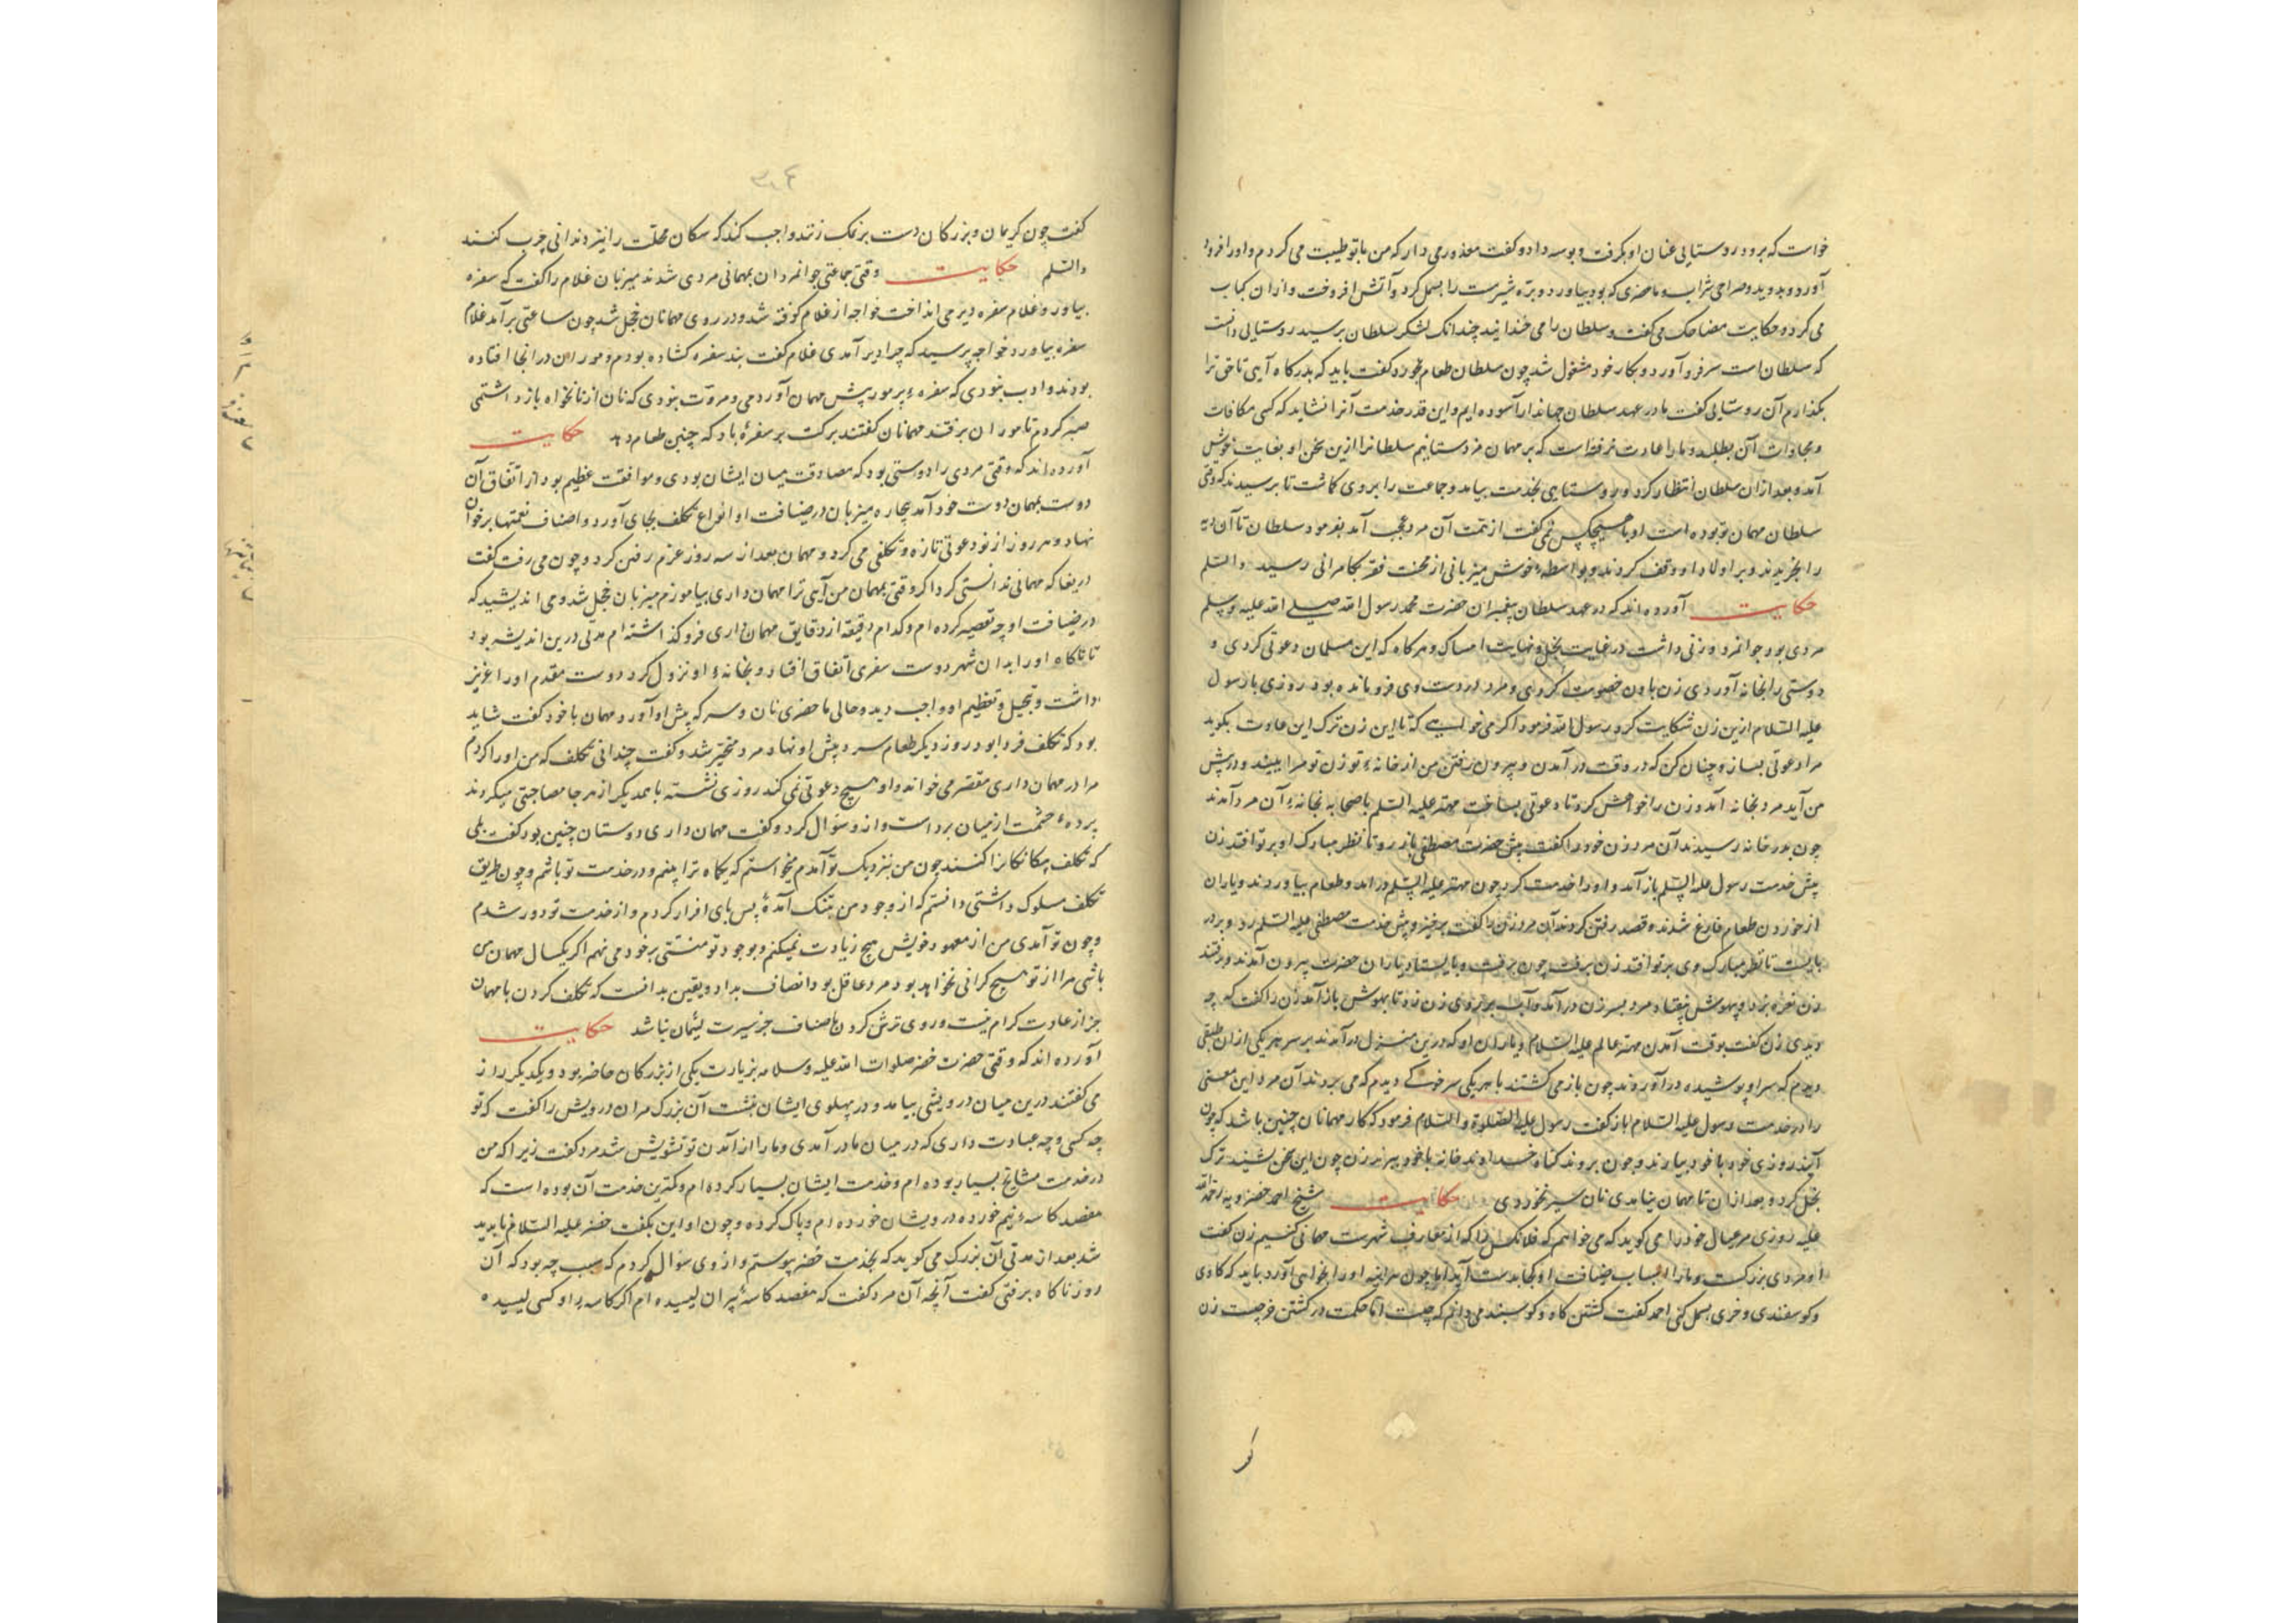 خواست که برود روستایی عنان او بگرفت و بوسه داد و گفت معذور می دار که من با تو طیبت می کردم و او را فرود
آورد و بدوید و صراحی شراب و ماحضری که بود بیاورد و بره شیرمست را بسمل کرد و آتش افروخت و از ان کباب
می کرد و حکایت مضاحک می گفت و سلطان را می خندانید چندانک لشکر سلطان برسید روستایی دانست
که سلطان است سر فرو آورد و بکار خود مشغول شد چون سلطان طعام بخورد گفت باید که بدرگاه آیی تا حق ترا
بگذارم آن روستایی گفت ما در عهد سلطان جهاندار آسوده ایم و این قدر خدمت آنرا نشاید که کسی مکافات
و مجازات آن بطلبد و ما را عادت نرفته است که بر مهمان مزد ستانیم سلطانرا ازین سخن او بغایت خوش
آمد و بعد از ان سلطان انتظار کرد و روستایی بخدمت بیامد و جماعت را بر وی گماشت تا برسیدند که وقتی
سلطان مهمان تو بوده است او با هیچکس نمی گفت از همت آن مرد عجب آمد بفرمود سلطان تا آن دیه
را بخریدند و بر اولاد او وقف کردند و بواسطهٔ خوش میزبانی از محنت فقر بکامرانی رسید والسلم
حکایت آورده اند که در عهد سلطان پیغمبران حضرت محمد رسول الله صلی الله علیه و سلم
مردی بود جوانمرد و زنی داشت در غایت بخل و نهایت امساک و هرگاه که این مسلمان دعوتی کردی و
دوستی را بخانه آوردی زن با وی خصومت کردی و مرد در دست وی فرو مانده بود روزی با رسول
علیه السلام ازین زن شکایت کرد رسول الله فرمود اگر می خواهی که تا این زن ترک این عادت بگوید
مرا دعوتی بساز و چنان کن که در وقت در آمدن و بیرون رفتن من از خانهٔ تو زن تو مرا ببیند و در پیش
من آید مرد بخانه آمد و زن را خواهش کرد تا دعوتی بساخت مهتر علیه السلم با صحابه بخانهٔ آن مرد آمدند
چون بدر خانه رسیدند آن مرد زن خود را گفت پیش حضرت مصطفی باز رو تا نظر مبارک او بر تو افتد زن
پیش خدمت رسول علیه السلم باز آمد و او را خدمت کرد چون مهتر علیه السلم در آمد و طعام بیاوردند و یاران
از خوردن طعام فارغ شدند و قصد رفتن کردند آن مرد زن را گفت برخیز و پیش خدمت مصطفی علیه السلم رو و بر در
بایست تا نظر مبارک وی بر تو افتد زن برفت چون برفت و بایستاد یاران حضرت بیرون آمدند و برفتند
زن نعره بزد و بیهوش بیفتاد مرد بسر زن در آمد و آب بر روی زن زد تا بهوش باز آمد زن را گفت که چه
دیدی زن گفت بوقت آمدن مهتر عالم علیه السلام و یاران او که درین منزل در آمدند بر سر هر یکی از ان طبقی
دیدم که سر او پوشیده در آوردند چون باز می گشتند با هر یکی سرخ دیدم که می بردند آن مرد این معنی
را در خدمت رسول علیه السلام باز گفت رسول علیه الصلوة و السلام فرمود که کار مهمانان چنین باشد که چون
آیند روزی خود با خود بیارند و چون بروند گناه خداوند خانه با خود ببرند زن چون این سخن بشنید ترک
بخل کرد و بعد از ان تا مهمان نیامدی نان سیر نخوردی حکایت شیخ احمد خضرویه رحمة الله
علیه روزی مر عیال خود را می گوید که می خواهم که فلانکس را که از معارف شهرست مهمانی کنیم زن گفت
او مردی بزرگست و ما را اسباب ضیافت او کجا بدست آید اما چون هر آینه او را بخواهی آورد باید که گاوی
و گوسفندی و خری بسمل کنی احمد گفت کشتن گاو و گوسبند می دانم که چیست اما حکمت در کشتن خر چیست زن
گفت چون کریمان و بزرگان دست بر نمک زنند واجب کند که سگان محلت را نیز دندانی چرب کنند
والسلم حکایت وقتی جماعتی جوانمردان بمهمانی مردی شدند میزبان غلام را گفت که سفره
بیاور و غلام سفره دیر می انداخت خواجه از غلام کوفته شد و در روی مهمانان خجل شد چون ساعتی بر آمد غلام
سفره بیاورد خواجه پرسید که چرا دیر آمدی غلام گفت بند سفره گشاده بودم و موران در انجا افتاده
بودند و ادب نبودی که سفرهٔ پر مور پیش مهمان آوردمی و مروت نبودی که نان از نانخواه باز داشتمی
صبر کردم تا موران برفتند مهمانان گفتند برکت بر سفرهٔ باد که چنین طعام دهد حکایت
آورده اند که وقتی مردی را دوستی بود که مصادقت میان ایشان بودی و موافقت عظیم بود از اتفاق آن
دوست بمهمان دوست خود آمد بیچاره میزبان در ضیافت او انواع تکلف بجای آورد و اصناف نعمتها بر خوان
نهاد و هر روز از نو دعوتی تازه و تکلفی می کرد و مهمان بعد از سه روز عزم رفتن کرد و چون می رفت گفت
دریغا که مهمانی ندانستی کرد اگر وقتی بمهمان من آیی ترا مهمان داری بیاموزم میزبان خجل شد و می اندیشید که
در ضیافت او چه تقصیر کرده ام و کدام دقیقه از دقایق مهمان داری فرو گذاشته ام مدتی درین اندیشه بود
تا ناگاه او را بدان شهر دوست سفری اتفاق افتاد و بخانهٔ او نزول کرد دوست مقدم او را عزیز
داشت و تبجیل و تعظیم او واجب دید و حالی ماحضری نان و سرکه پیش او آورد مهمان با خود گفت شاید
بود که تکلف فردا بود روز دیگر طعام سرد پیش او نهاد مرد متحیر شد و گفت چندانی تکلف که من او را کردم
مرا در مهمان داری مقصر می خواند و او هیچ دعوتی نمی کند روزی نشسته با همدیگر از هر جا مصاحبتی میکردند
پردهٔ حشمت از میان برداشت و از و سؤال کرد و گفت مهمان داری دوستان چنین بود گفت بلی
که تکلف بیگانگانرا کنند چون من بنزدیک تو آمدم میخواستم که یکماه ترا بینم و در خدمت تو باشم و چون طریق
تکلف مسلوک داشتی دانستم که از وجود من بتنگ آمدهٔ پس پای افزار کردم و از خدمت تو دور شدم
و چون تو آمدی من از معهود خویش هیچ زیادت نمیکنم و بوجود تو منتی بر خود می نهم اگر یکسال مهمان من
باشی مرا از تو هیچ گرانی نخواهد بود مرد عاقل بود انصاف بداد و یقین بدانست که تکلف کردن با مهمان
جز از عادت کرام نیست و روی ترش کردن باضیاف جز سیرت لئیمان نباشد حکایت
آورده اند که وقتی حضرت خضر صلوات الله علیه و سلامه بزیارت یکی از بزرگان حاضر بود و یکدیگر راز
می گفتند درین میان درویشی بیامد و در پهلوی ایشان بنشست آن بزرگ مر ان درویش را گفت که تو
چه کسی و چه عبادت داری که در میان ما در آمدی و ما را از آمدن تو تشویش شد مرد گفت زیرا که من
در خدمت مشایخ بسیار بوده ام و خدمت ایشان بسیار کرده ام و کمترین خدمت آن بوده است که
مقصد کاسهٔ نیم خورده درویشان خورده ام و پاک کرده و چون او این بگفت خضر علیه السلام ناپدید
شد بعد از مدتی آن بزرگ می گوید که بخدمت خضر پیوستم و از وی سؤال کردم که سبب چه بود که آن
روز ناگاه برفتی گفت آنچه آن مرد گفت که مقصد کاسهٔ پیران لیسیده ام اگر کاسهٔ او کسی لیسیده